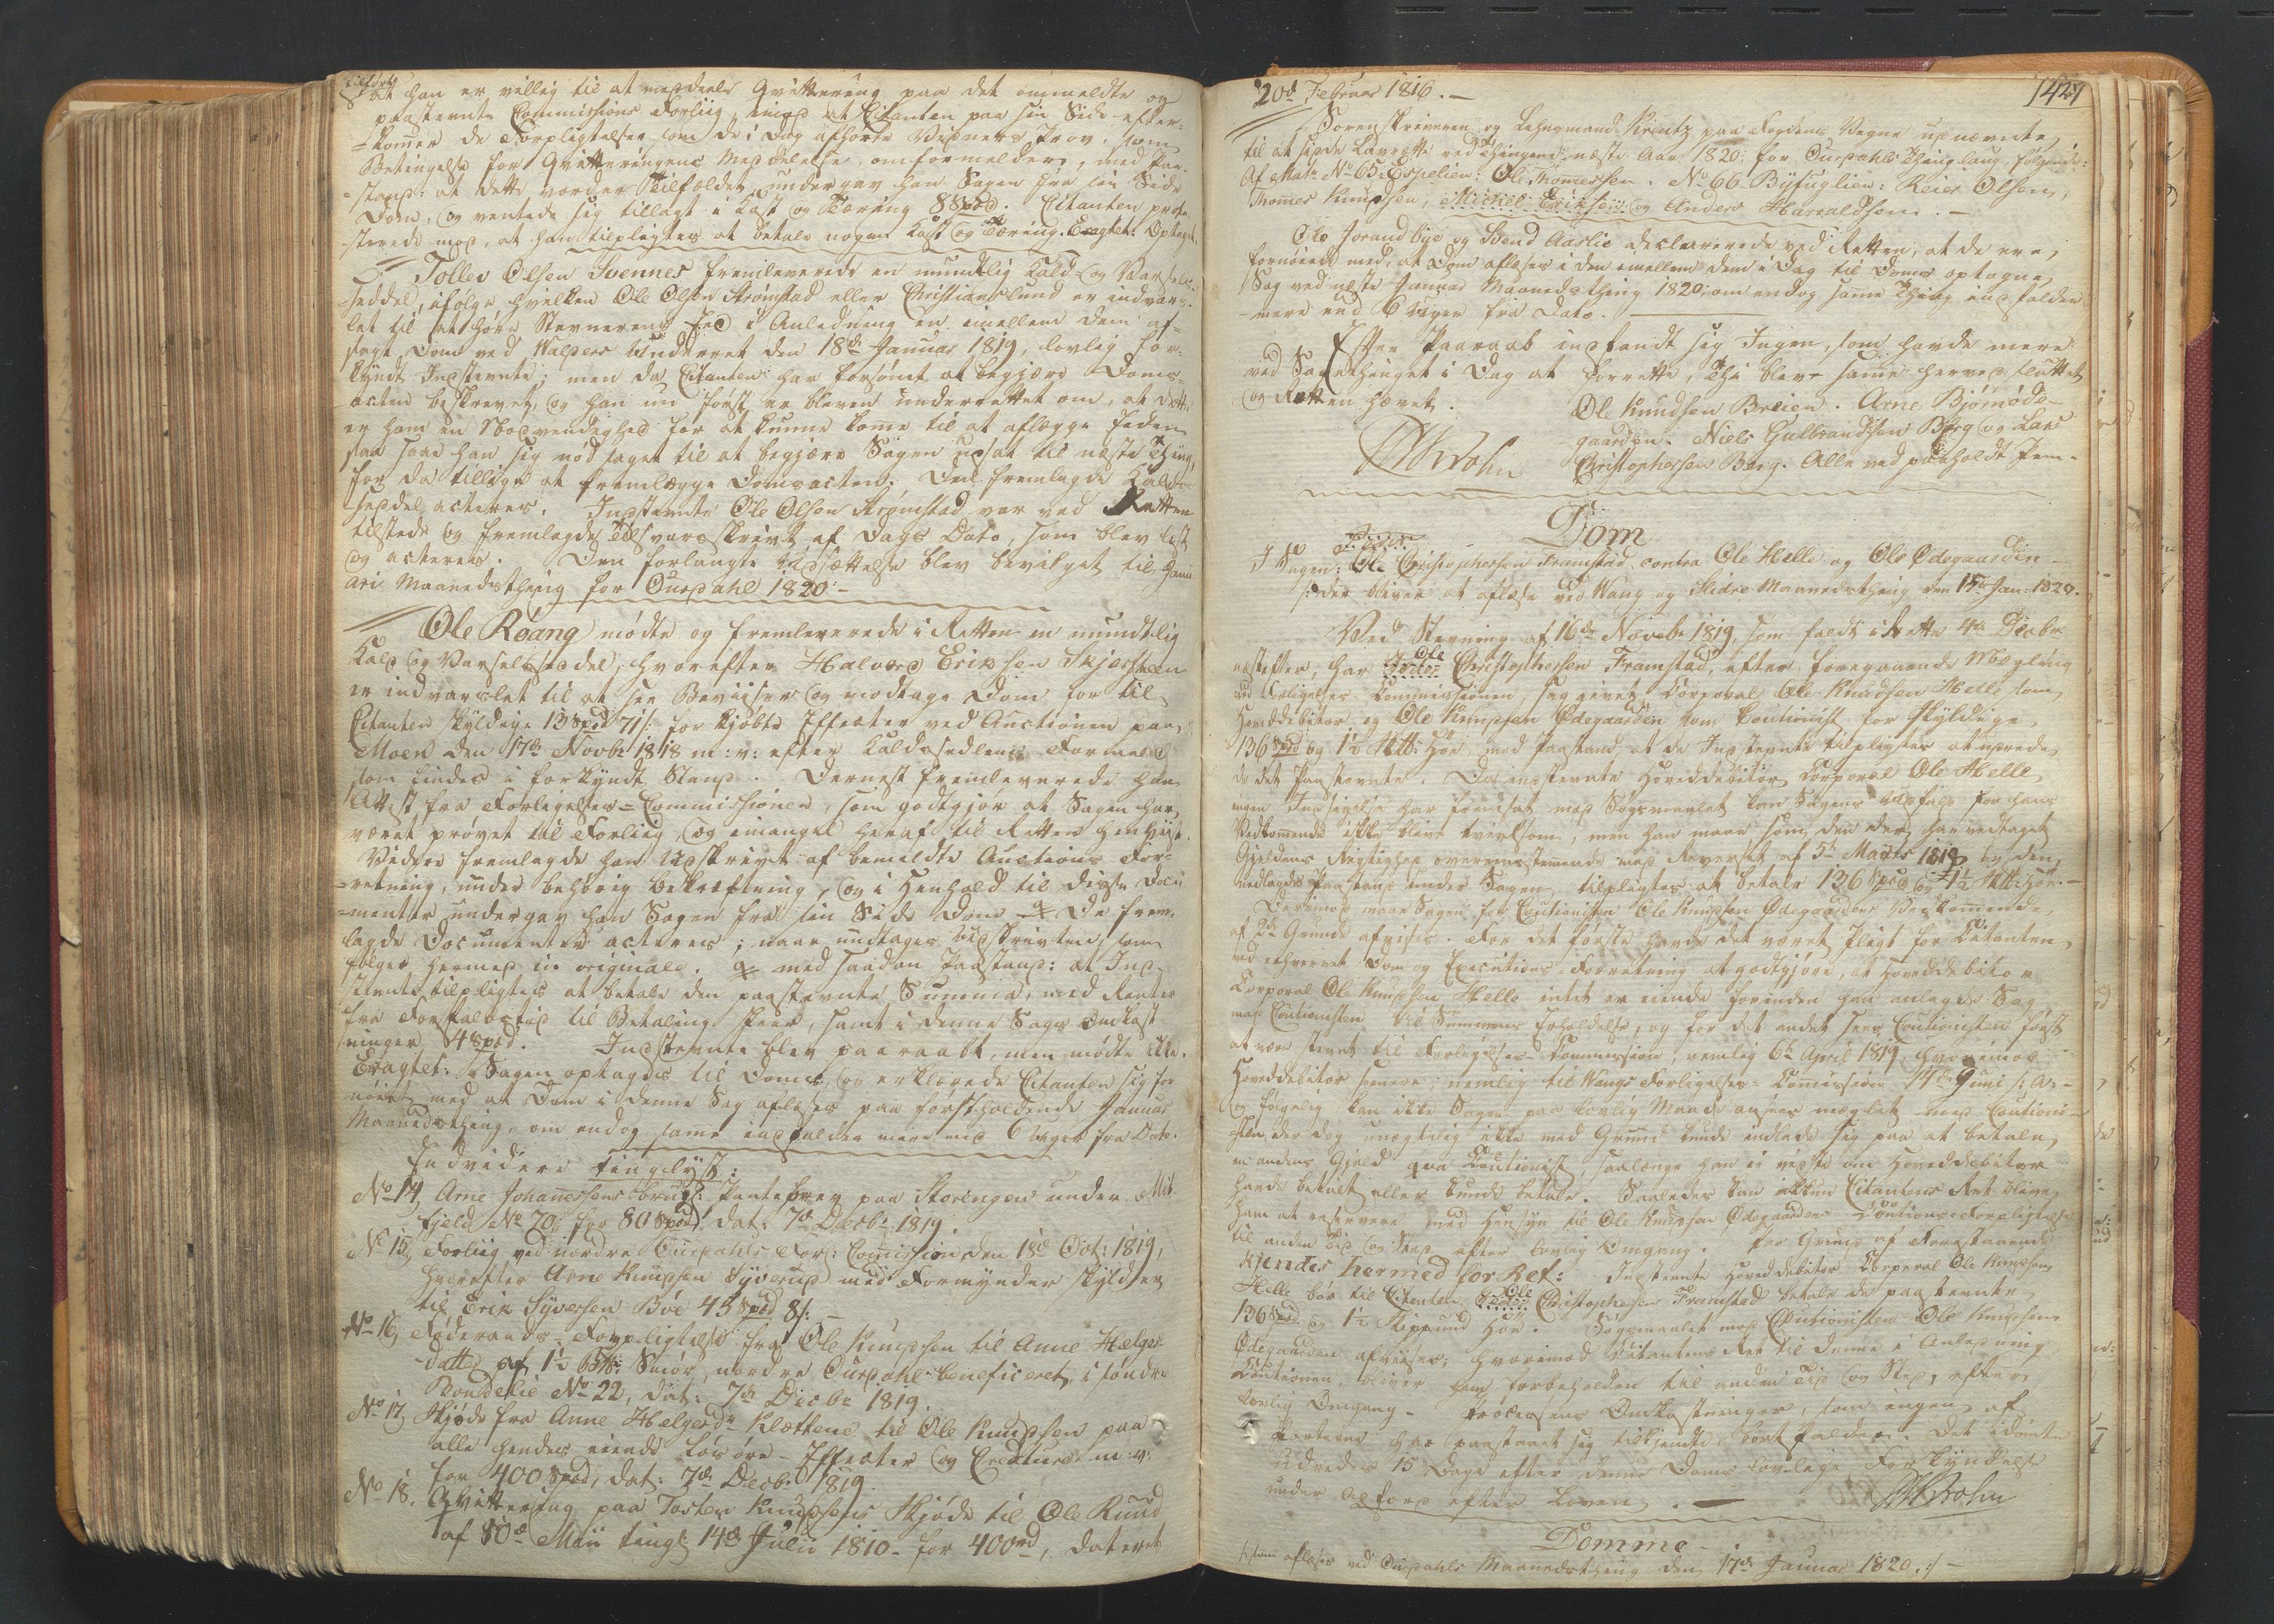 tilførte
at han er villig til at meddeele Qvittering paa det ommeldte og
paastevnte Commissions Forliig, imod at Citanten paa sin Side efter-
-kommer de Forpligtelser som de i Dag afhørte Vidners Prov, som
Betingelse for Qvitteringens Meddelelse, omformelder, med Paa-
-stand: at dette vorder Tilfældet, undergav han Sagen fra sin Side
Dom, og ventede sig tillagt i Kost og Tæring 8 Spd. Citanten prote-
-sterede mod, at han tilpligtes at betale nogen Kost og Tæring. Eragtet: Optaget.
Tollev Olsen Svennes fremleverede en mundtlig Kald- og Varsels-
-seddel, ifølge hvilken Ole Olsen Strømstad eller Christianslund er indvars-
let til at høre Stevnerens Eed i Anledning en imellem dem af-
sagt Dom ved Waldres Underret den 18de Januar 1819, lovlig for-
kyndt Indstevnte; men da Citanten har forsømt at begjære Doms-
acten beskrevet, og han nu først er bleven underrettet om, at dette
er ham en Nødvendighed for at kunne komme til at aflægge Eeden
saa saae han sig nødsaget til at begjære Sagen udsat til næste Thing,
for da tillige at fremlægge Domsacten. Den fremlagde Kalds-
seddel acteres. Indstevnte Ole Olsen Strømstad var ved Retten
tilstede og fremlagde Tilsvarsskrivt af Dags Dato, som blev læst
og acteres. Den forlangte Udsættelse blev bevilget til Janu
ari Maanedsthing for Ourdahl 1820 -
Ole Roang mødte og fremleverede i Retten en mundtlig
Kald og Varselsseddel, hvorefter Halvord Eriksen Skjersteen
er indvarslet til at see Beviiser og modtage Dom for til
Citanten skyldige 13 Spd 71 s. for kjøbte Effecter ved Auctionen paa
Moen den 17de Novbr 1818 m: v: efter Kaldssedlens Formeld
som findes i forkyndt Stand. Dernest fremleverede han
Attest fra Forligelses-Commissionen, som godtgjør at Sagen har
været prøvet til Forliig, og i mangel heraf til Retten henviist.
Videre fremlagde han Udskrivt af bemeldte Auctions For-
-retning, under behørig bekræftning, og i Henhold til disse Docu
-menter undergav han Sagen fra sin Side Dom De frem-
lagde Documenter acteres; naar undtages Udskrivten, som
følger hermed in originale. med saadan Paastand: at Ind-
stevnte tilpligtes at betale den paastevnte Summa, med Renter
fra Forfaldstid til Betaling skeer, samt i denne Sags Omkost-
ninger 4 Spd. Indstevnte blev paaraabt, men mødte ikke.
Eragtet: Sagen optages til Doms, og erklærede Citanten sig for
nøiet med at Dom i denne Sag aflæses paa førstholdende Januar
Maanedsthing, om endog samme indfalder mere end 6 Uger fra Dato.
Endvidere tinglyst:
No 14, Arne Johannessens Pantebrev paa Storengen under Mit-
fjeld No 70, for 80 Spd, dat: 7de Decbr 1819.
No 15, Forliig ved nordre Ourdahls Forl: Comission den 18de Oct: 1819,
hvorefter Arne Knudsen Syverud med Formynder skylder
til Erik Syversen Bøe 45 Spd 8 s. -
No 16, Føderaads-Forpligtelse fra Ole Knudsen til Anne Helges-
datter af 1½ Smør, nordre Ourdahls beneficeret, i søndre
Bondelie No 22, dat: 7de Decbr 1819.
No 17, Skjøde fra Anne Helgesdr Klættene til Ole Knudsen paa
alle hendes eiende Løsøre-Effecter og Creature m: v:
for 400 Spd, dat: 7de Decbr 1819
No 18. Qvittering paa Tosten Knudsens Skjøde til Ole Knud
af 30te Maii tingl: 14de Julii 1810 - for 400 rd, dateret
20d Februar 1816. -
1427
Sorenskriveren og Lehnsmand Krentz paa Fogdens Vegne udnævnte
til at siide Lavrette ved Thingene næste Aar 1820, for Ourdahls Thinglaug, følgende:
Af Matr: No 65 Espelien: Ole Thomessen. No 66 Byfuglien: Reier Olsen,
Thomes Knudsen, Michel Eriksen og Anders Haraldsen. -
Ole Jorandbye og Svend Aaslie declarerede ved Retten, at de ere
fornøiede med, at Dom aflæses i den imellem dem i Dag til Doms optagne
Sag ved næste Januar Maanedsthing 1820, om endog samme Thing indfalder
mere end 6 Uger fra Dato.
Efter Paaraab indfandt sig Ingen, som havde mere
ved Sagethinget i Dag at forrette, Thi blev samme herved sluttet
og Retten hævet.
Ole Knudsen Breien. Arne Bjørnøde-
gaarden. Niels Gulbrandsen Berg og Lars
Christophersen Berg. Alle ved paaholdt Pen.
Dom
I Sagen: Ole Christophersen Framstad contra Ole Helle og Ole Ødegaarden
/: der bliver at aflæse ved Wang og Slidre Maanedsthing den 15de Jan: 1820.
Ved Stevning af 16de Novbr 1819, som faldt i Rette 4de Decbr
næstefter, har Ole Christophersen Framstad, efter foregaaende Mægling
ved Forligelses-Commissionen, sagsgivet Corporal Ole Knudsen Helle som
Hoveddebitor og Ole Knudsen Ødegaarden som Cautionist for skyldige
136 Spd og 1½ Høe, med Paastand at de Indstevnte tilpligtes at udrede
de det Paastevnte. Da indstevnte Hoveddebitor Corporal Ole Helle
ingen Indsigelse har fremsat mod Søgsmaalet kan Sagens Udfald for hans
Vedkommende ikke blive tvivlsom, men han maae som den der har vedtaget
Gjeldens Rigtighed overensstemmende med Reverset af 5te Marts 1819 og den
nedlagde Paastand under Sagen, tilpligtes at betale 136 Spd og 1½ Høe. -
Derimod maae Sagen for Cautionisten Ole Knudsen Ødegaardens Vedkommende,
af 2de Grunde afvises. For det første havde det været Pligt for Citanten,
ved erhvervet Dom og Executions-Forretning at godtgjøre, at Hoveddebitor
Corporal Ole Knudsen Helle intet er eiende forinden han anlagde Sag
mod Cautionisten til Summens Erholdelse, og for det andet sees Cautionisten først
at være stevnt til Forligelses-Commission, nemlig 6te April 1819, hvorimod
Hoveddebitor senere, nemlig til Wangs Forligelses-Comission 14de Juni s: A: -
og følgelig kan ikke Sagen paa lovlig Maade ansees mæglet med Cautioni-
-sten, der dog unægtelig ikke med Grund kunde indlade sig paa at betale
en andens Gjæld qva Cautionist, saalænge han ei vidste om Hoveddebitor
havde betalt eller kunde betale. Saaledes kan ikkun Citantens Ret blive
ham at reservere med Hensyn til Ole Knudsen Ødegaardens Cautions-Forpligtelse
til anden Tid og Sted efter lovlig Omgang. Paa Grund af Forestaaende
kjendes hermed for Ret: Indstevnte Hoveddebitor Corporal Ole Knudsen
Helle bør til Citanten Ole Christophersen Framstad betale de paastevnte
136 Spd og 1½ Skippund Høe. Søgsmaalet mod Cautionisten Ole Knudsen
Ødegaarden afviises; hvorimod Citantens Ret til denne i Anledning
Cautionen, bliver ham forbeholden til anden Tid og Sted, efter
lovlig Omgang. - Processens Omkostninger, som ingen af
Parterne har paastaaet sig tilkjendt, bortfalder. Det idømte
udredes 15 Dage efter denne Doms lovlige Forkyndelse
under Adfærd efter Loven. -
Domme -
/: som aflæses ved Ourdahls Maanedsthing den 17de Januar 1820. :/ -